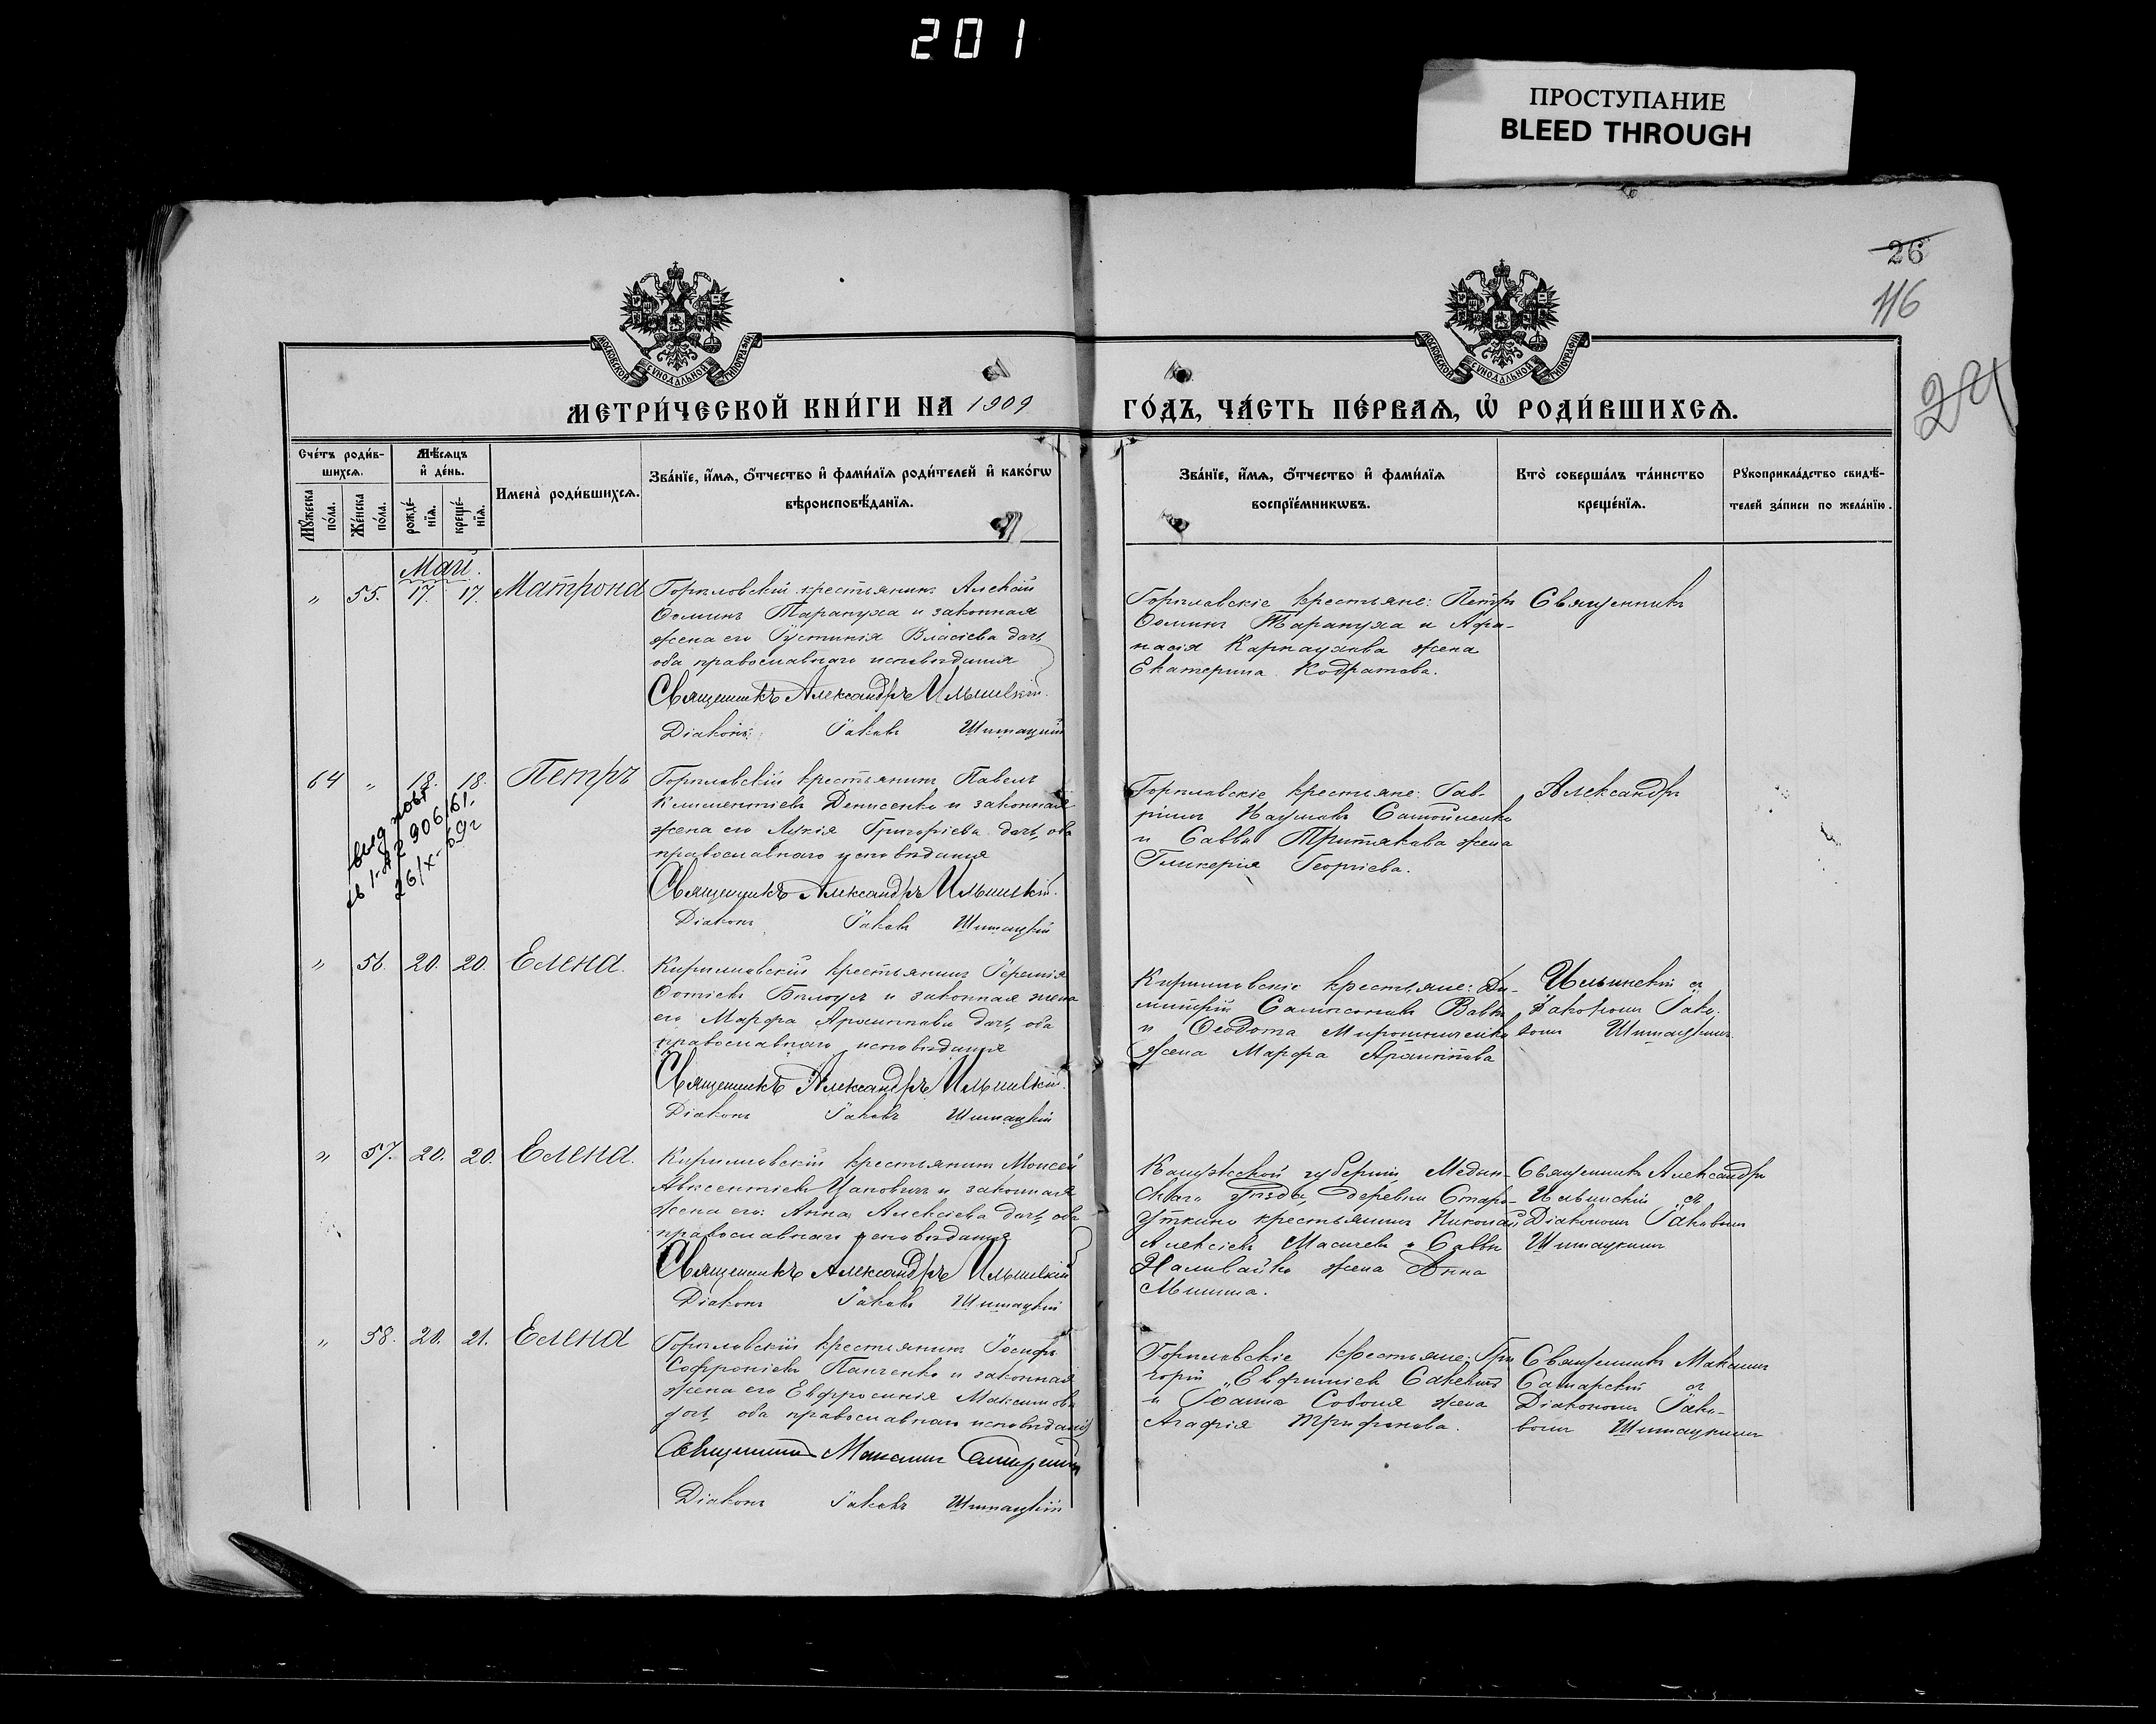 201
ПРОСТУПАНИЕ
BLEED THROUGH
26
116
24
МОСКОВСКОЙ СѴНОДАЛЬНОЙ ТИПОГРАФІИ
МОСКОВСКОЙ СѴНОДАЛЬНОЙ ТИПОГРАФІИ
МЕТРИ́ЧЕСКОЙ КНИ́ГИ НА 1909
ГО́ДЪ, ЧА́СТЬ ПЕ́РВАѦ, Ѽ РОДИ́ВШИХСѦ.
Сче́тъ роди́в-
шихсѧ.
Мѣ́сѧцъ
и҆ де́нь.
Мꙋ́жеска по́ла.
Же́нска по́ла.
рожде́-
нїѧ.
креще́-
нїѧ.
Имена̀ роди́вшихсѧ.
Зва́нїе, и҆́мѧ, ѻ҆́тчество и҆ фами́лїѧ роди́телей и҆ како́гѡ
вѣроисповѣ́данїѧ.
Зва́нїе, и҆́мѧ, ѻ҆́тчество и҆ фами́лїѧ
воспрїе́мникѡвъ.
Кто̀ соверша́лъ та́инство
креще́нїѧ.
Рꙋкоприкла́дство свидѣ́-
телей за́писи по жела́нїю.
Май.
" 55. 17. 17. Матрона
Гориловскій крестьянинъ Алексій
Ѳоминъ Тарапуха и законная
жена его Іустинія Власіева дочь,
оба православнаго исповѣданія
Священникъ Александръ Ильинскій.
Діаконъ Іаковъ Шитацкій
Гориловскіе крестьяне: Петръ
Ѳоминъ Тарапуха и Афа-
насія Карпаухова жена
Екатерина Кодратова.
Священникъ
64 " 18. 18. Петръ
26/X-69г
Гориловскій крестьянинъ Павелъ
Климентіевъ Денисенко и законная
жена его Лукія Григоріева дочь, оба
православнаго исповѣданія
Священникъ Александръ Ильинскій.
Діаконъ Іаковъ Шитацкій
Гориловскіе крестьяне: Гав-
ріилъ Наумовъ Самойленко
и Саввы Третякова жена
Гликерія Георгіева.
Александръ
" 56. 20. 20. Елена.
Кирилловскій крестьянинъ Іеремія
Ѳотіевъ Билоусъ и законная жена
его Марфа Архиппова дочь, оба
православнаго исповѣданія
Священникъ Александръ Ильинскій.
Діаконъ Іаковъ Шитацкій
Кирилловскіе крестьяне: Ди-
митрій Самсоновъ Вовкъ
и Ѳеодота Мирошниченко
жена Марфа Архиппова
Ильинскій съ
Діакономъ Іако-
вомъ Шитацкимъ.
" 57. 20. 20. Елена.
Кирилловскій крестьянинъ Моисей
Авксентіевъ Цаповичъ и законная
жена его: Анна Алексіева дочь, оба
православнаго исповѣданія
Священникъ Александръ Ильинскій
Діаконъ Іаковъ Шитацкій
Калужской губерніи, Медын-
скаго уѣзда, деревни Старо-
Уткино крестьянинъ Николай
Алексіевъ Масичевъ и Саввы
Наливайко жена Анна
Священникъ Александръ
Ильинскій съ
Діакономъ Іаковомъ
Шитацкимъ
" 58. 20. 21. Елена
Гориловскій крестьянинъ Іосифъ
Софроніевъ Панченко и законная
жена его Евфросинія Максимова
дочь, оба православнаго исповѣданія
Священникъ Максимъ Самарскій
Діаконъ Іаковъ Шитацкій
Гориловскіе крестьяне: Гри
горій Евфиміевъ
и Іоанна Соболя жена
Агафія Трифонова.
Священникъ Максимъ
Самарскій съ
Діакономъ Іако-
вомъ Шитацкимъ